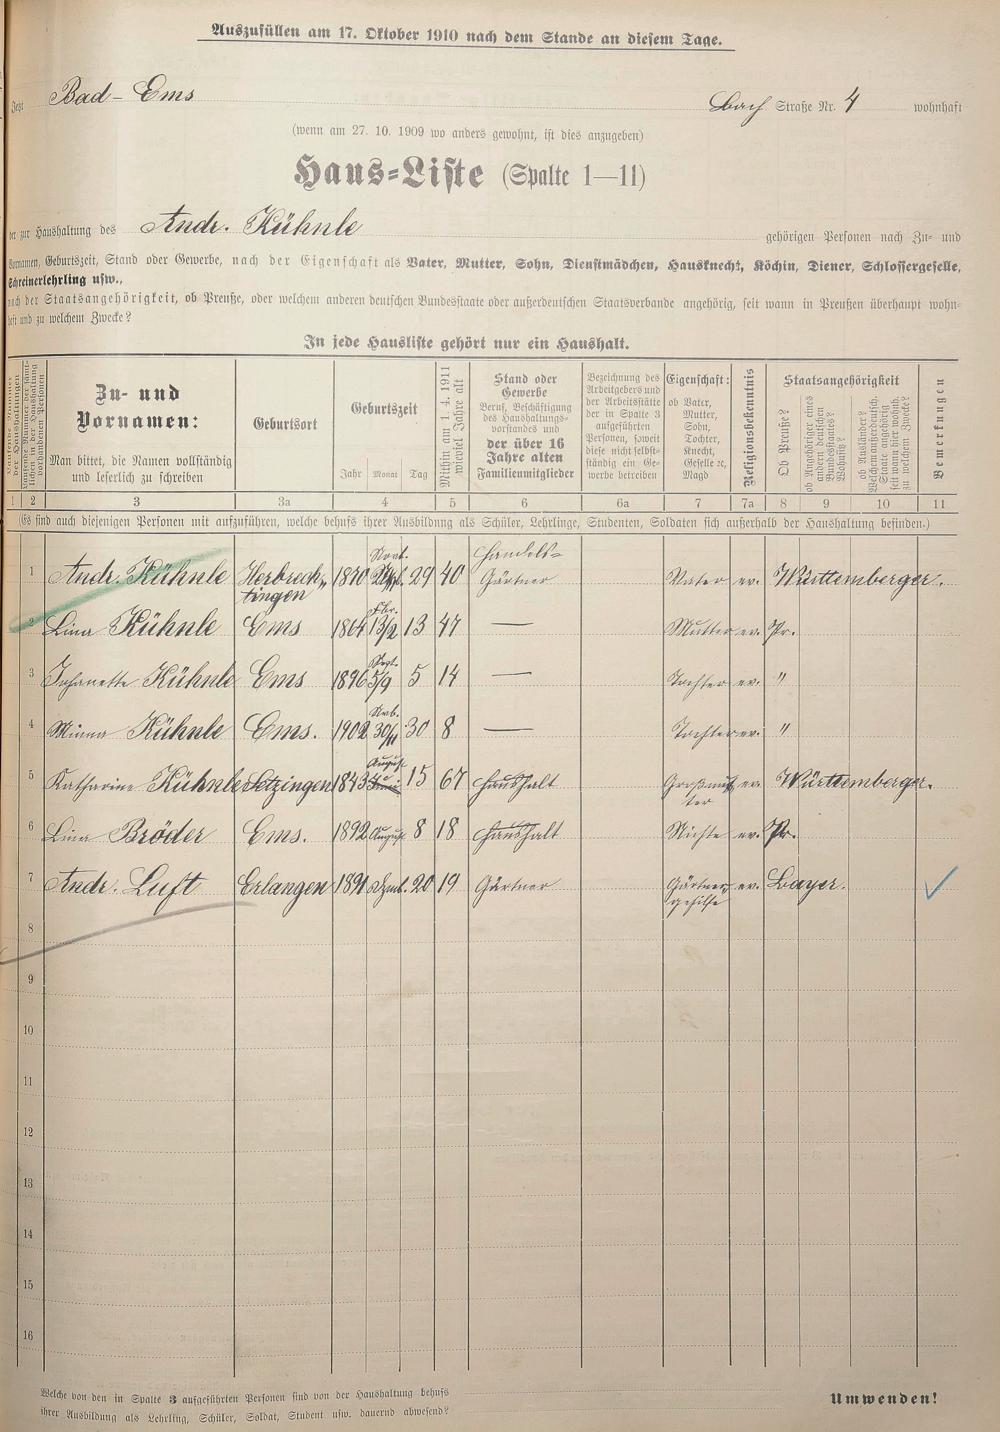 Auszufüllen am 17. Oktober 1910 nach dem Stande an diesem Tage.
Jetzt Bad-Ems Bach Straße Nr. 4 wohnhaft
(wenn am 27. 10. 1909 wo anders gewohnt, ist dies anzugeben)
Haus-Liste (Spalte 1—11)
der zur Haushaltung des Andr. Kühnle gehörigen Personen nach Zu- und
Vornamen, Geburtszeit, Stand oder Gewerbe, nach der Eigenschaft als Vater, Mutter, Sohn, Dienstmädchen, Hausknecht, Köchin, Diener, Schlossergeselle,
Schreinerlehrling usw.,
nach der Staatsangehörigkeit, ob Preuße, oder welchem anderen deutschen Bundesstaate oder außerdeutschen Staatsverbande angehörig, seit wann in Preußen überhaupt wohn-
haft und zu welchem Zwecke?
In jede Hausliste gehört nur ein Haushalt.
Zu- und Vornamen:
Man bittet, die Namen vollständig und leserlich zu schreiben
Geburtsort
Geburtszeit
Jahr Monat Tag
Mithin am 1. 4. 1911 wieviel Jahre alt
Stand oder Gewerbe
Beruf, Beschäftigung des Haushaltungsvorstandes und
der über 16 Jahre alten Familienmitglieder
Bezeichnung des Arbeitgebers und der Arbeitsstätte der in Spalte 3 aufgeführten Personen, soweit diese nicht selbständig ein Gewerbe betreiben
Eigenschaft:
ob Vater, Mutter, Sohn, Tochter, Knecht, Geselle ꝛc, Magd
Religionsbekenntnis
Staatsangehörigkeit
Ob Preuße?
ob Angehöriger eines andern deutschen Bundesstaates? Welchen?
ob Ausländer? Welchem außerdeutsch. Staate angehörig, seit wann hier wohnh. zu welchem Zwecke?
Bemerkungen
1 2 3 3a 4 5 6 6a 7 7a 8 9 10 11
(Es sind auch diejenigen Personen mit aufzuführen, welche behufs ihrer Ausbildung als Schüler, Lehrlinge, Studenten, Soldaten sich außerhalb der Haushaltung befinden.)
1 Andr. Kühnle Herbrechtingen 1870 29 40 Handels-Gärtner Vater ev. Württemberger.
2 Lina Kühnle Ems 1864 Fbr. 13/2 13 47 — Mutter ev. Pr.
3 Johanette Kühnle Ems 1896 Sept. 5/9 5 14 — Tochter ev. "
4 Minna Kühnle Ems. 1902 30/11 30 8 — Tochter ev. "
5 Katharina Kühnle Setzingen 1843 August 15 67 Haushalt Großmutter ev. Württemberger.
6 Lina Bröder Ems. 1892 August 8 18 Haushalt Nichte ev. Pr.
7 Andr. Luft Erlangen 1891 Dzmb. 20 19 Gärtner Gärtnergehilfe ev. Bayer.
8
9
10
11
12
13
14
15
16
Welche von den in Spalte 3 aufgeführten Personen sind von der Haushaltung behufs
ihrer Ausbildung als Lehrling, Schüler, Soldat, Student usw. dauernd abwesend?
Umwenden!